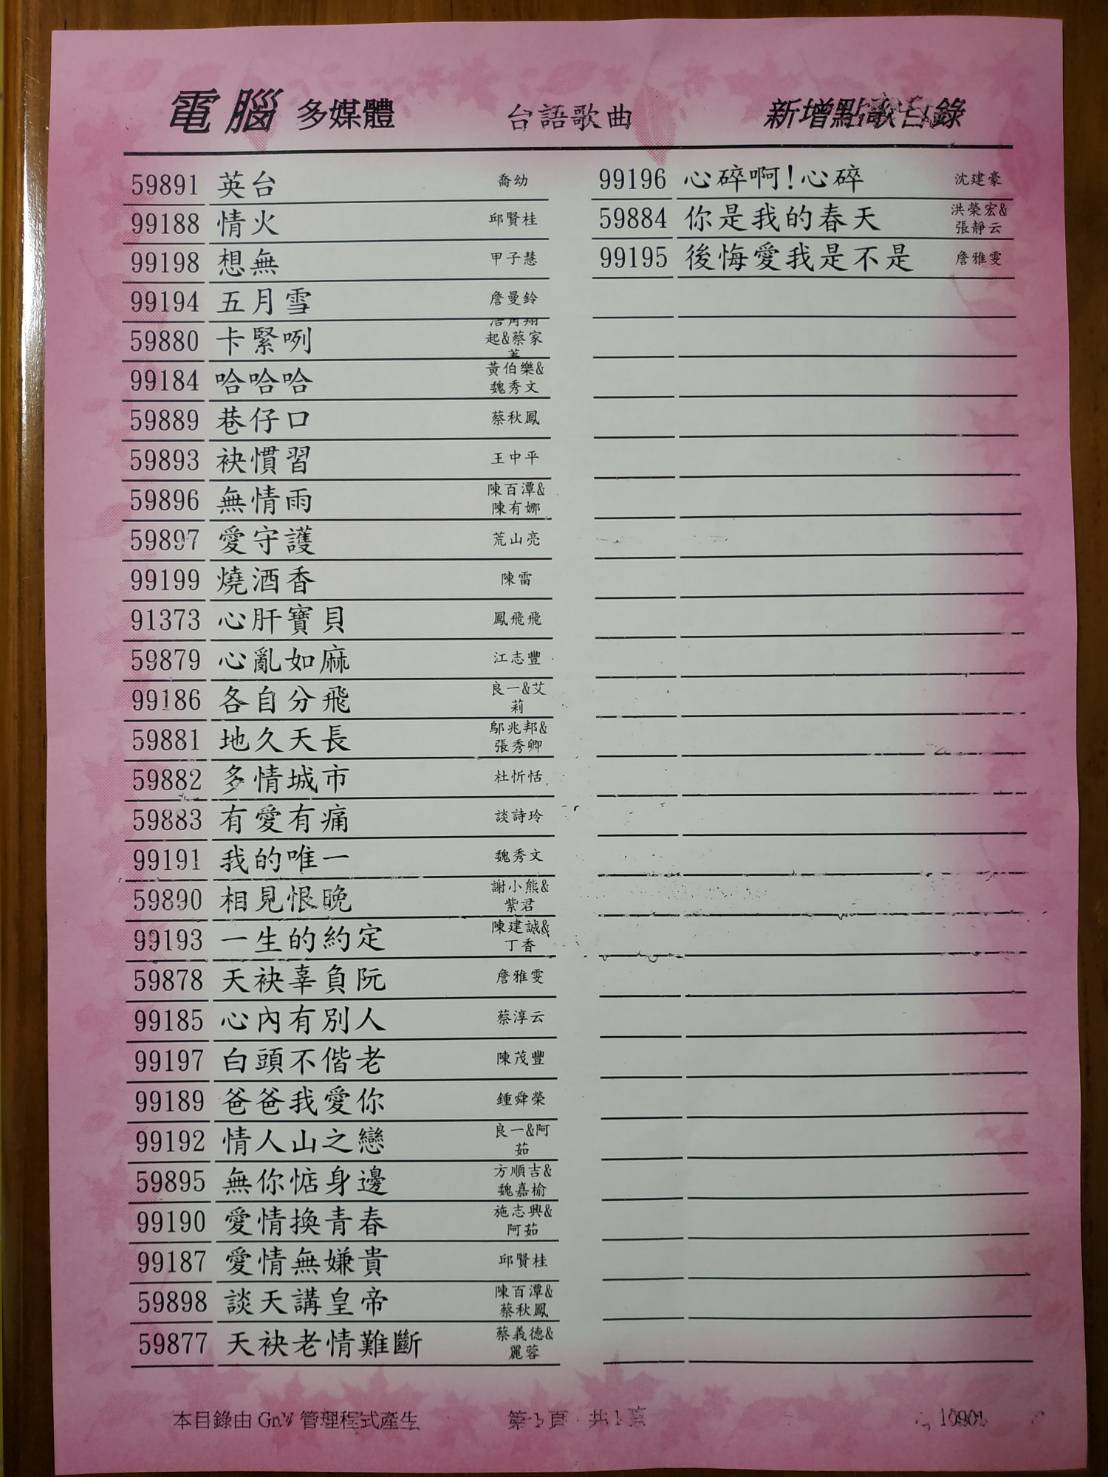 電腦 多媒體 台語歌曲 新增點歌目錄
59891 英台 喬幼
99188 情火 邱賢桂
99198 想無 甲子慧
99194 五月雪 詹曼鈴
59880 卡緊咧 起&蔡家
99184 哈哈哈 黃伯樂&魏秀文
59889 巷仔口 蔡秋鳳
59893 袂慣習 王中平
59896 無情雨 陳百潭&陳有娜
59897 愛守護 荒山亮
99199 燒酒香 陳雷
91373 心肝寶貝 鳳飛飛
59879 心亂如麻 江志豐
99186 各自分飛 良一&艾莉
59881 地久天長 鄔兆邦&張秀卿
59882 多情城市 杜忻恬
59883 有愛有痛 談詩玲
99191 我的唯一 魏秀文
59890 相見恨晚 謝小熊&紫君
99193 一生的約定 陳建誠&丁香
59878 天袂辜負阮 詹雅雯
99185 心內有別人 蔡淳云
99197 白頭不偕老 陳茂豐
99189 爸爸我愛你 鍾舜榮
99192 情人山之戀 良一&阿茹
59895 無你惦身邊 方順吉&魏嘉榆
99190 愛情換青春 施志興&阿茹
99187 愛情無嫌貴 邱賢桂
59898 談天講皇帝 陳百潭&蔡秋鳳
59877 天袂老情難斷 蔡義德&麗蓉
99196 心碎啊!心碎 沈建豪
59884 你是我的春天 洪榮宏&張靜云
99195 後悔愛我是不是 詹雅雯
本目錄由 管理程式產生 第1頁 共1頁 10901